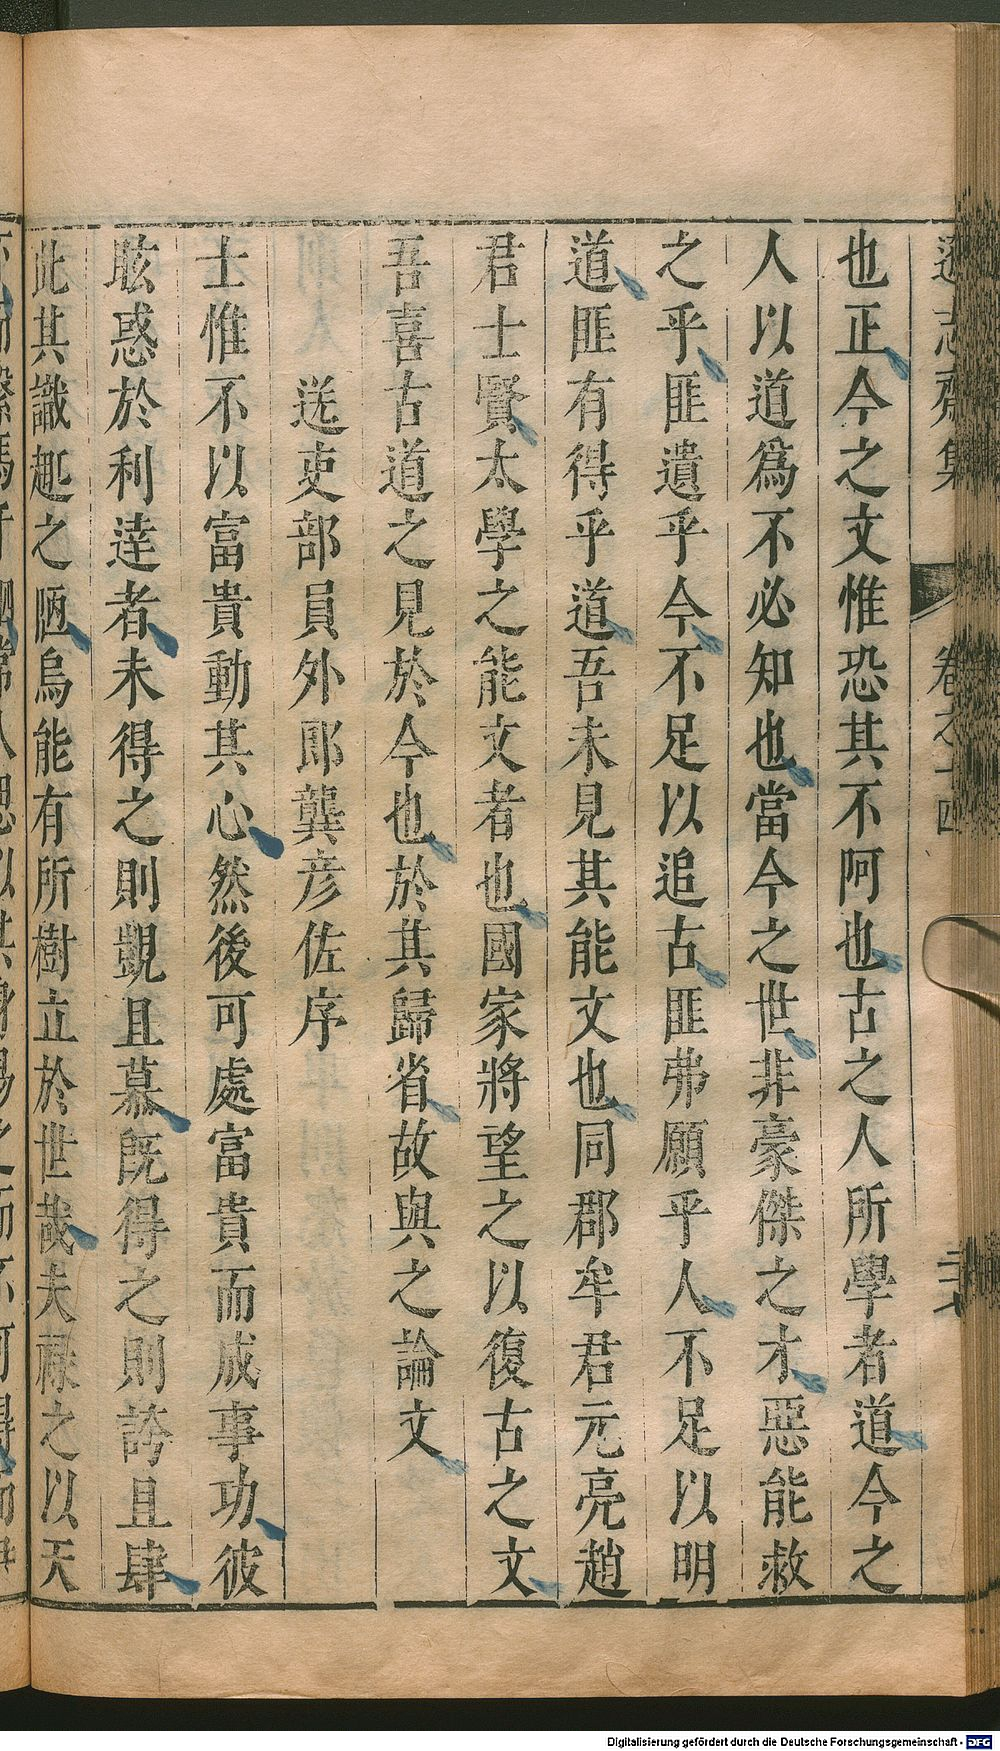 遜志齋集 卷之十四
也正今之文惟恐其不阿也古之人所學者道今之
人以道爲不必知也當今之世非豪傑之才惡能救
之乎匪遺乎今不足以追古匪弗願乎人不足以明
道匪有得乎道吾未見其能文也同郡牟君元亮趙
君士賢太學之能文者也國家將望之以復古之文
吾喜古道之見於今也於其歸省故與之論文
送吏部員外郎龔彦佐序
士惟不以富貴動其心然後可處富貴而成事功彼
眩惑於利達者未得之則覬且慕既得之則誇且肆
此其識趣之陋烏能有所樹立於世哉夫祿之以天
Digitalisierung gefördert durch die Deutsche Forschungsgemeinschaft - DFG